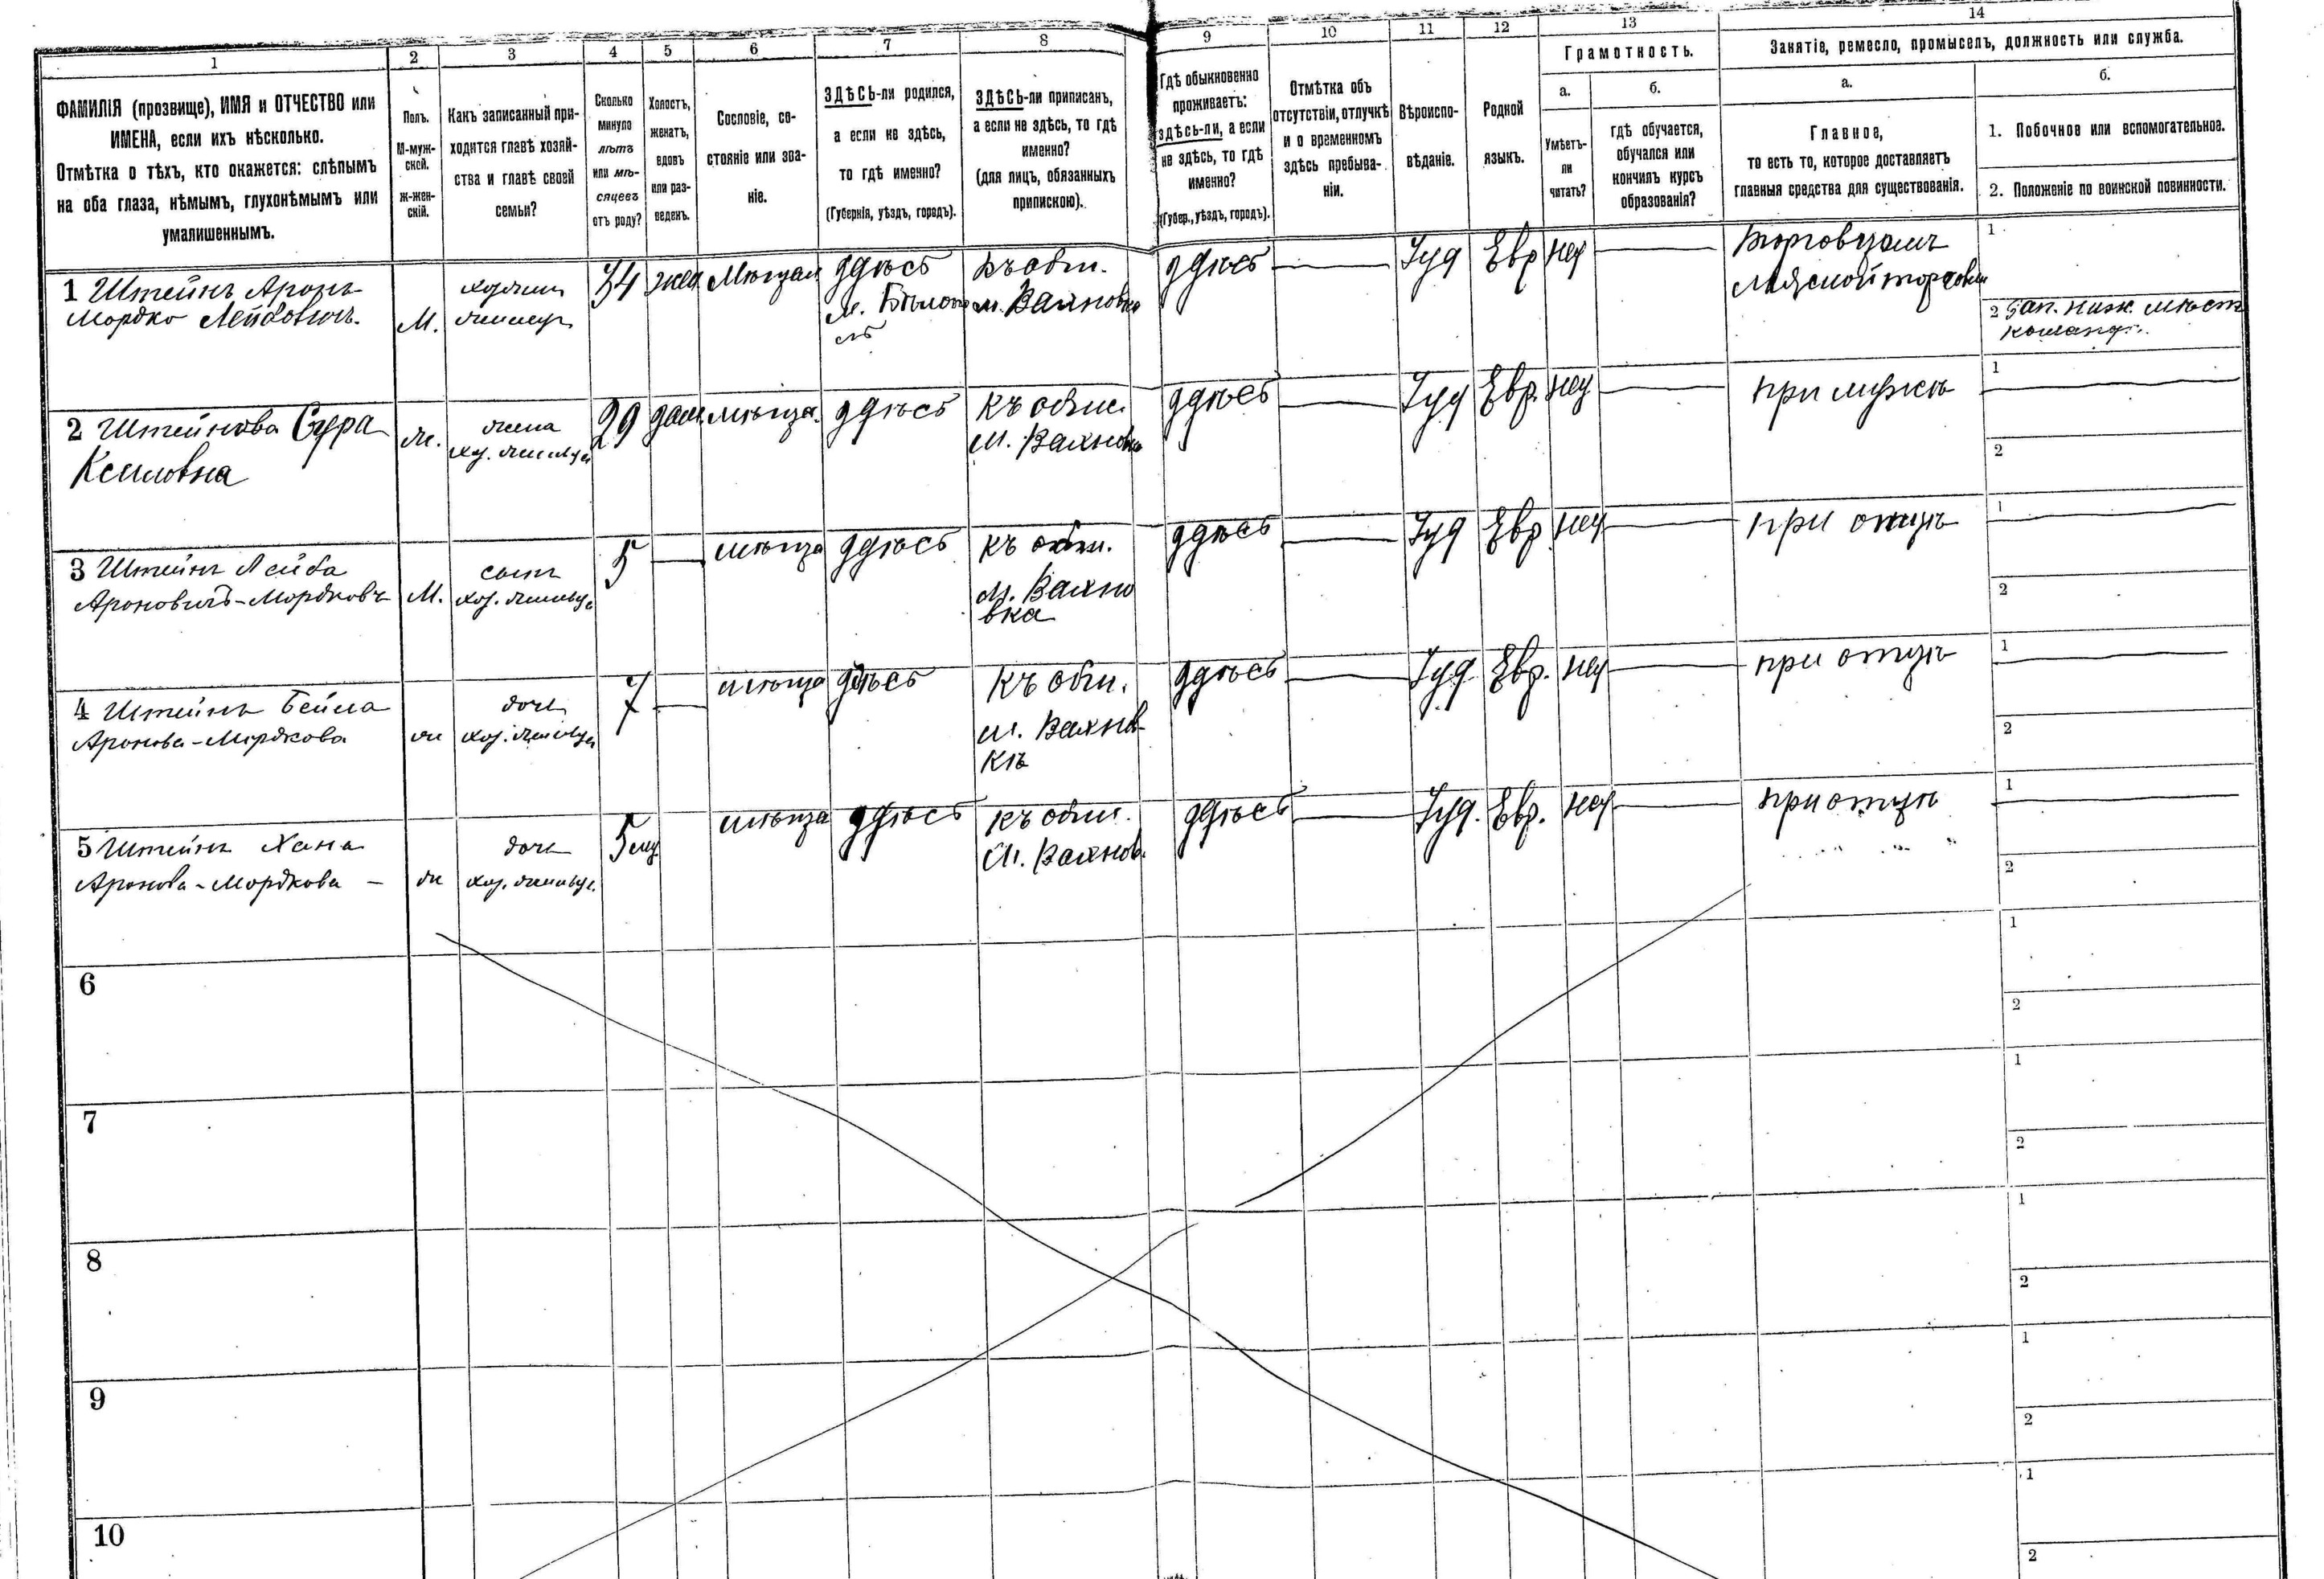 1
2
3
4
5
6
7
8
9
10
11
12
13
14
ФАМИЛІЯ (прозвище), ИМЯ и ОТЧЕСТВО или
ИМЕНА, если ихъ нѣсколько.
Отмѣтка о тѣхъ, кто окажется: слѣпымъ
на оба глаза, нѣмымъ, глухонѣмымъ или
умалишеннымъ.
Полъ.
М-муж-
ской.
Ж-жен-
скій.
Какъ записанный при-
ходится главѣ хозяй-
ства и главѣ своей
семьи?
Сколько
минуло
лѣтъ
или мѣ-
сяцевъ
отъ роду?
Холостъ,
женатъ,
вдовъ
или раз-
веденъ.
Сословіе, со-
стояніе или зва-
ніе.
ЗДѢСЬ-ли родился,
а если не здѣсь,
то гдѣ именно?
(Губернія, уѣздъ, городъ).
ЗДѢСЬ-ли приписанъ,
а если не здѣсь, то гдѣ
именно?
(для лицъ, обязанныхъ
припискою).
Гдѣ обыкновенно
проживаетъ:
здѣсь-ли, а если
не здѣсь, то гдѣ
именно?
(Губер., уѣздъ, городъ).
Отмѣтка объ
отсутствіи, отлучкѣ
и о временномъ
здѣсь пребыва-
ніи.
Вѣроиспо-
вѣданіе.
Родной
языкъ.
Грамотность.
а.
Умѣетъ-
ли
читать?
б.
гдѣ обучается,
обучался или
кончилъ курсъ
образованія?
Занятіе, ремесло, промыселъ, должность или служба.
а.
Главное,
то есть то, которое доставляетъ
главныя средства для существованія.
б.
1. Побочное или вспомогательное.
2. Положеніе по воинской повинности.
1 Штейнъ Аронъ
Мордко Лейбовичъ.
М.
34
жен.
Мѣщан
здѣсь
къ общ.
м. Вахновка
здѣсь
Іуд
Евр
нѣт
Торговецъ
Мясной торговли
1
2 Зап. ниж. мѣст
команд.
2 Штейнова Сура
ж.
жена
29
зам.
мѣща.
здѣсь
къ общ.
м. Вахновка
здѣсь
Іуд
Евр.
нѣт
при мужѣ
1
2
3 Штейнъ Лейба
Ароновичъ-Мордковъ
М.
сынъ
5
мѣща
здѣсь
къ общ.
м. Вахно
вка
здѣсь
Іуд
Евр
нѣт
при отцѣ
1
2
4 Штейнъ Бейла
Аронова-Мордкова
ж
дочь
7
мѣща
здѣсь
къ общ.
м. Вахнов-
кѣ
здѣсь
Іуд
Евр.
нѣт
при отцѣ
1
2
5 Штейнъ Хана
Аронова-Мордкова -
ж
дочь
5 мц
мѣща
здѣсь
къ общ.
м. Вахнов.
здѣсь
Іуд.
Евр.
нѣт
при отцѣ
1
2
6
1
2
7
1
2
8
1
2
9
1
2
10
1
2